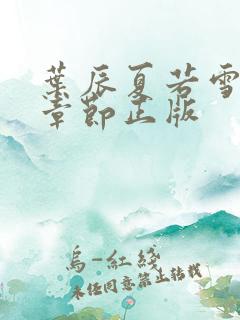 葉辰夏若雪
章節正版
烏-紅綫
未经同意禁止转载